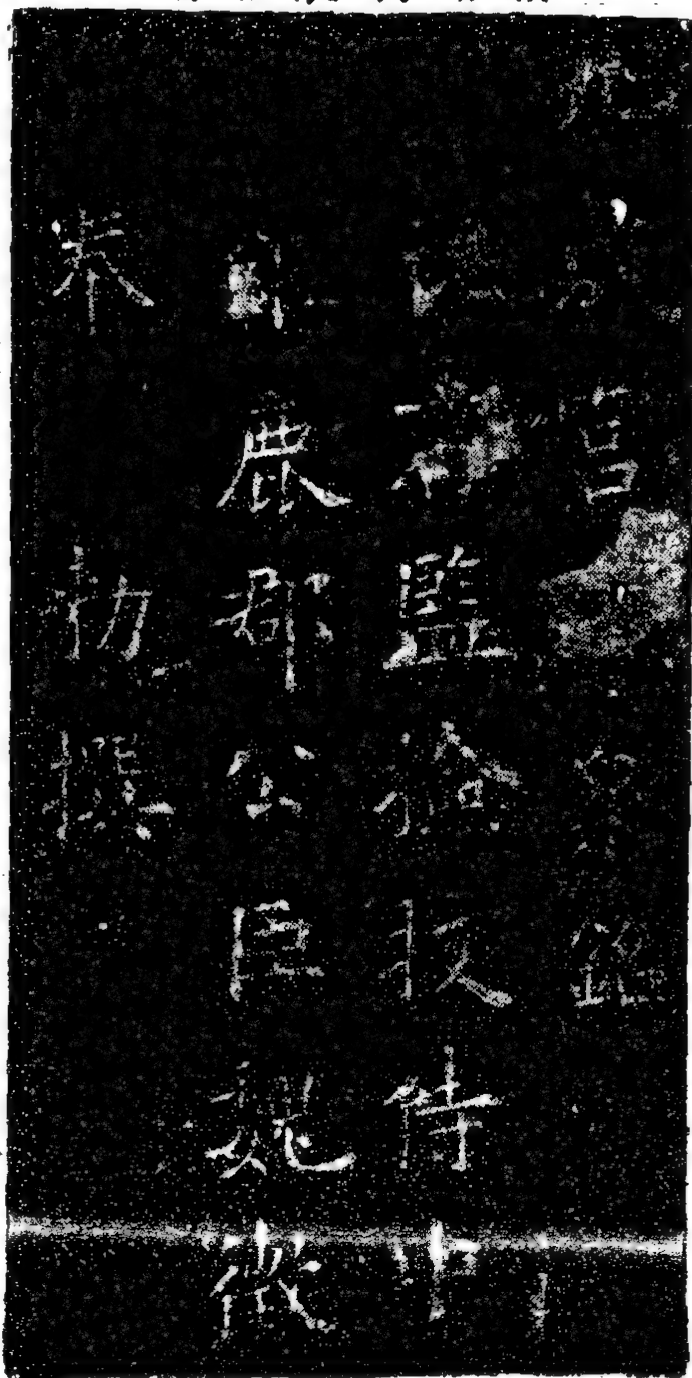 九宮泉銘
監檢校侍中
鹿郡公臣魏徵
奉
勅撰